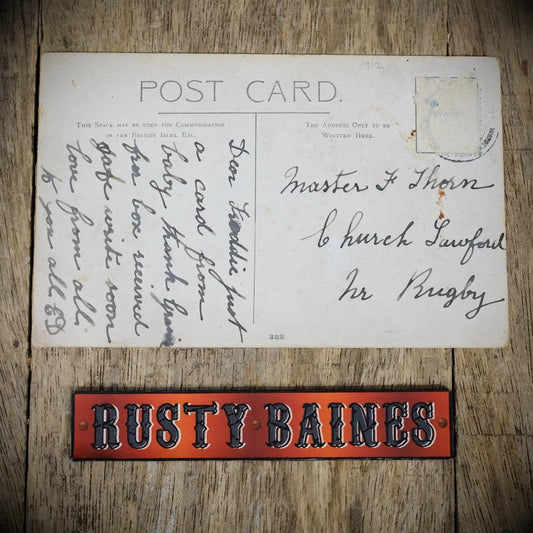 1912
POST CARD.
THIS SPACE MAY BE USED FOR COMMUNICATION
IN THE BRITISH ISLES, ETC.
THE ADDRESS ONLY TO BE
WRITTEN HERE.
Dear Freddie just
a card from
baby thank
for box received
safe write soon
love from all
to you all
Master F Thorn
Church Lawford
Nr Rugby
388
RUSTY BAINES